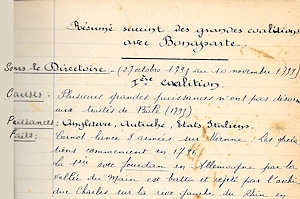 Résumé succint des grandes coalitions
avec Bonaparte
Sous le Directoire - (27 octobre 1795 au 10 novembre 1799)
Ière Coalition.
Causes: Plusieurs grandes puissances n'ont pas désar
aux traités de Bâle (1795)
Puissances: Angleterre, Autriche, Etats Italiens.
Faits: Carnot lance 3 armées sur Vienne. Les opéra
tions commencent en 1796
la 1ère avec Jourdan en Allemagne par la
Vallée du Main est battu et rejeté par l'archi
duc Charles sur la rive gauche du Rhin en